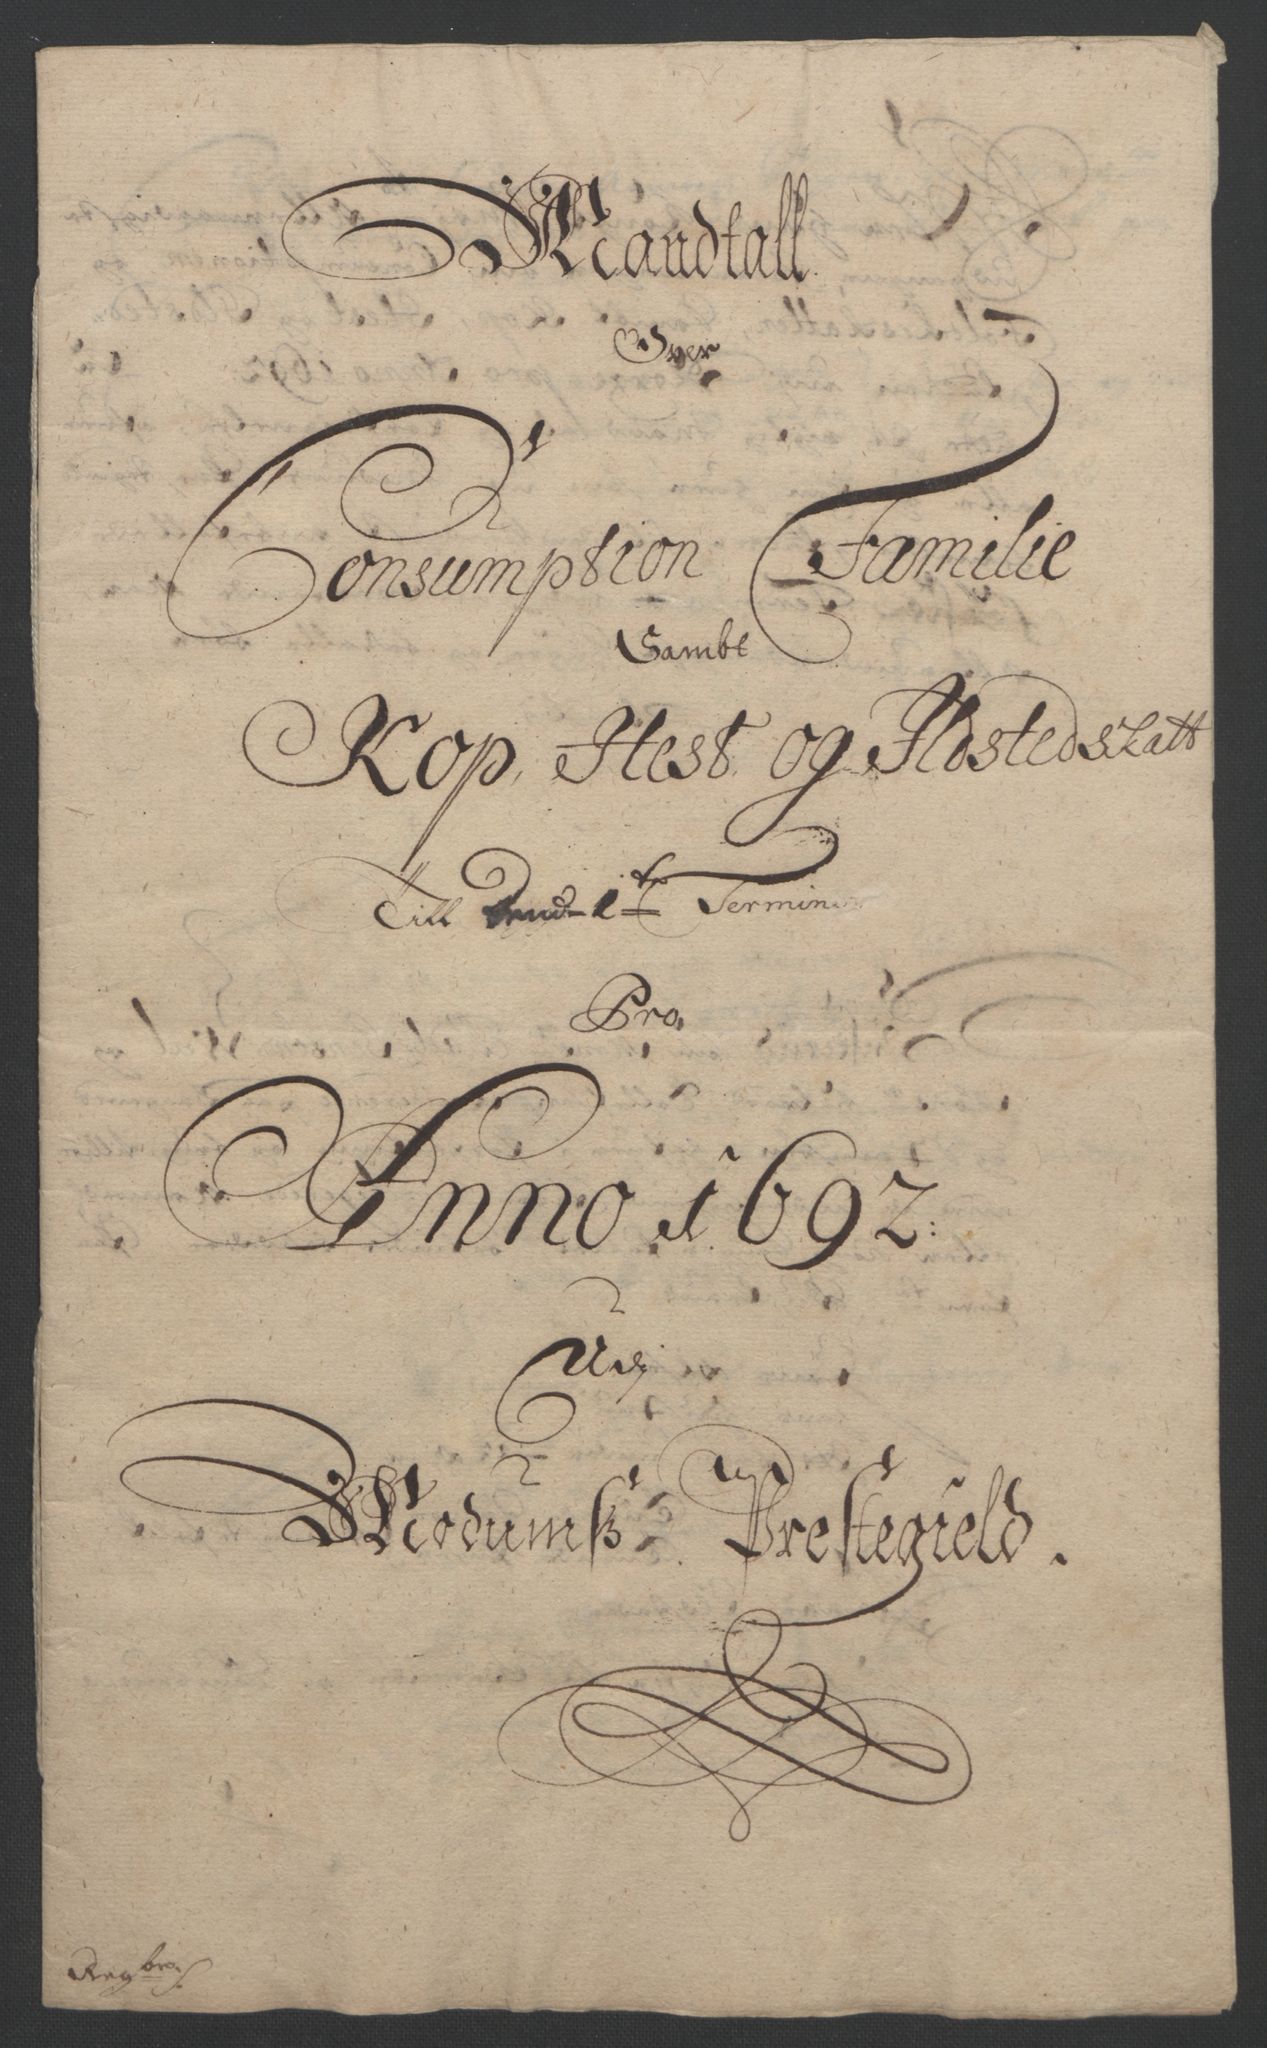 Mandtall
Over
Consumption Familie
Sambt
Kop, Hest og Ildstedskatt
Till 1te Termin
Pro
Anno 1692.
Udj
Modumß Prestegield.